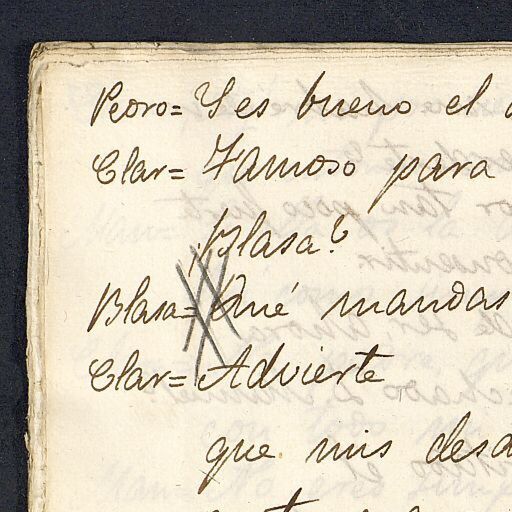 Pedro= Y es bueno el
Clar= Famoso para
¿Blasa?
Blasa= Qué mandas
Clar= Advierte
que mis desd